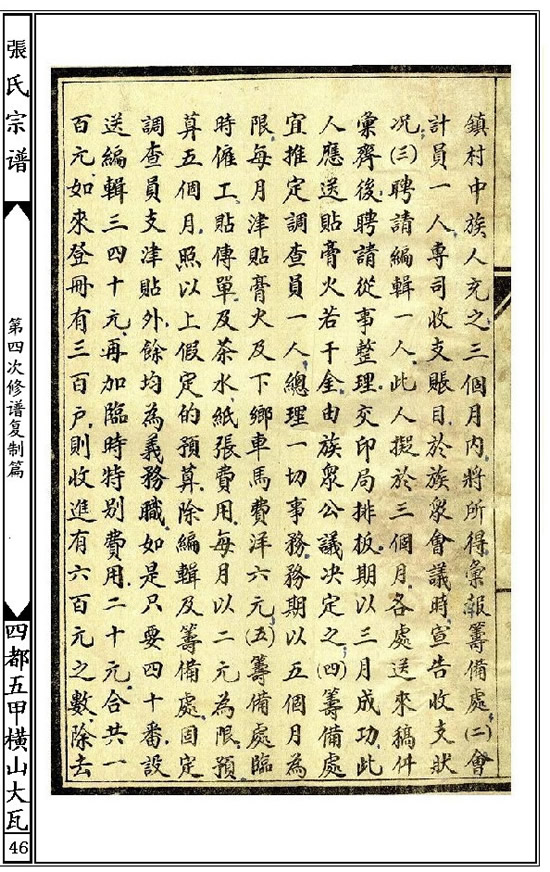 鎮村中族人充之三個月內將所得彙報籌備處(二)會
計員一人專司收支賬目於族衆會議時宣告收支狀
况(三)聘請編輯一人此人擬於三個月各處送來稿件
彙齊後聘請從事整理交印局排板期以三月成功此
人應送貼膏火若干金由族衆公議决定之(四)籌備處
宜推定調查員一人總理一切事務務期以五個月為
限每月津貼膏火及下鄉車馬費洋六元(五)籌備處臨
時僱工貼傳單及茶水紙張費用每月以二元為限預
算五個月照以上假定的預算除編輯及籌備處固定
調查員支津貼外餘均為義務職如是只要四十番設
送編輯三四十元再加臨時特别費用二十元合共一
百元如來登冊有三百户則收進有六百元之數除去
張氏宗谱
第四次修谱复制篇
四都五甲横山大瓦
46